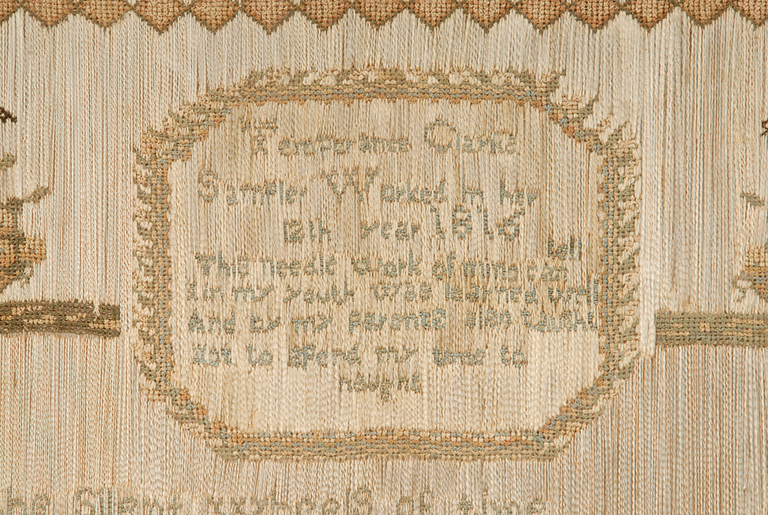 Temperance Clarke
Sampler Worked in her
12th Year 1816
tell
This needle work of mine can
I in my youth was learned well
And by my Parents also taught
Not to spend my time to
naught
The Silent of time